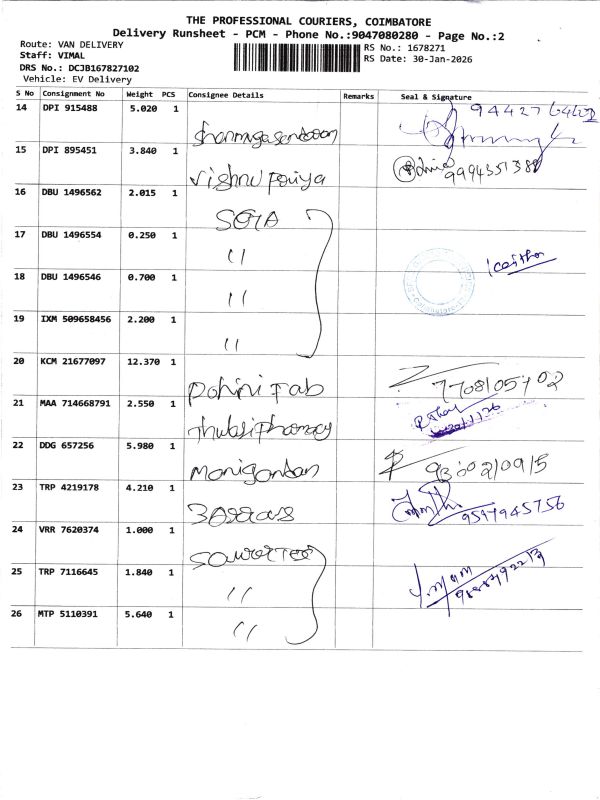 THE PROFESSIONAL COURIERS, COIMBATORE
Delivery Runsheet - PCM - Phone No.:9047080280 - Page No.:2
Route: VAN DELIVERY
Staff: VIMAL
DRS No.: DCJB167827102
Vehicle: EV Delivery
RS No.: 1678271
RS Date: 30-Jan-2026
S No Consignment No Weight PCS Consignee Details Remarks Seal & Signature
14 DPI 915488 5.020 1
15 DPI 895451 3.840 1 Vishnu Priya 9994351388
16 DBU 1496562 2.015 1
17 DBU 1496554 0.250 1 "
18 DBU 1496546 0.700 1 "
19 IXM 509658456 2.200 1 "
20 KCM 21677097 12.370 1 Rohini Fab 7708105702
21 MAA 714668791 2.550 1
22 DDG 657256 5.980 1 Manigandan
23 TRP 4219178 4.210 1 9597945756
24 VRR 7620374 1.000 1
25 TRP 7116645 1.840 1 "
26 MTP 5110391 5.640 1 "